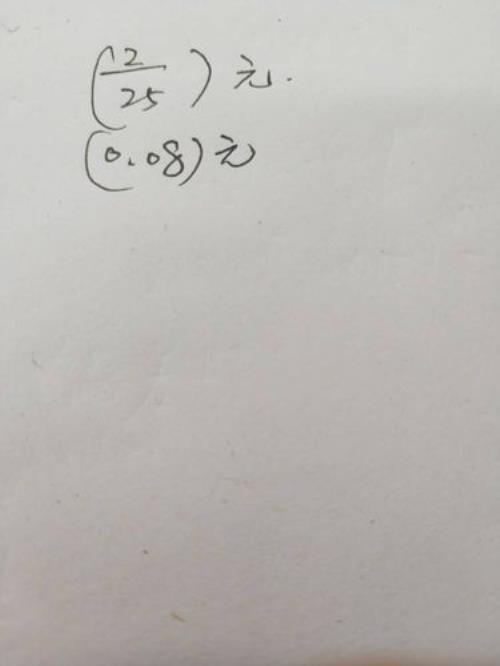 (2/25)元.
(0.08)元